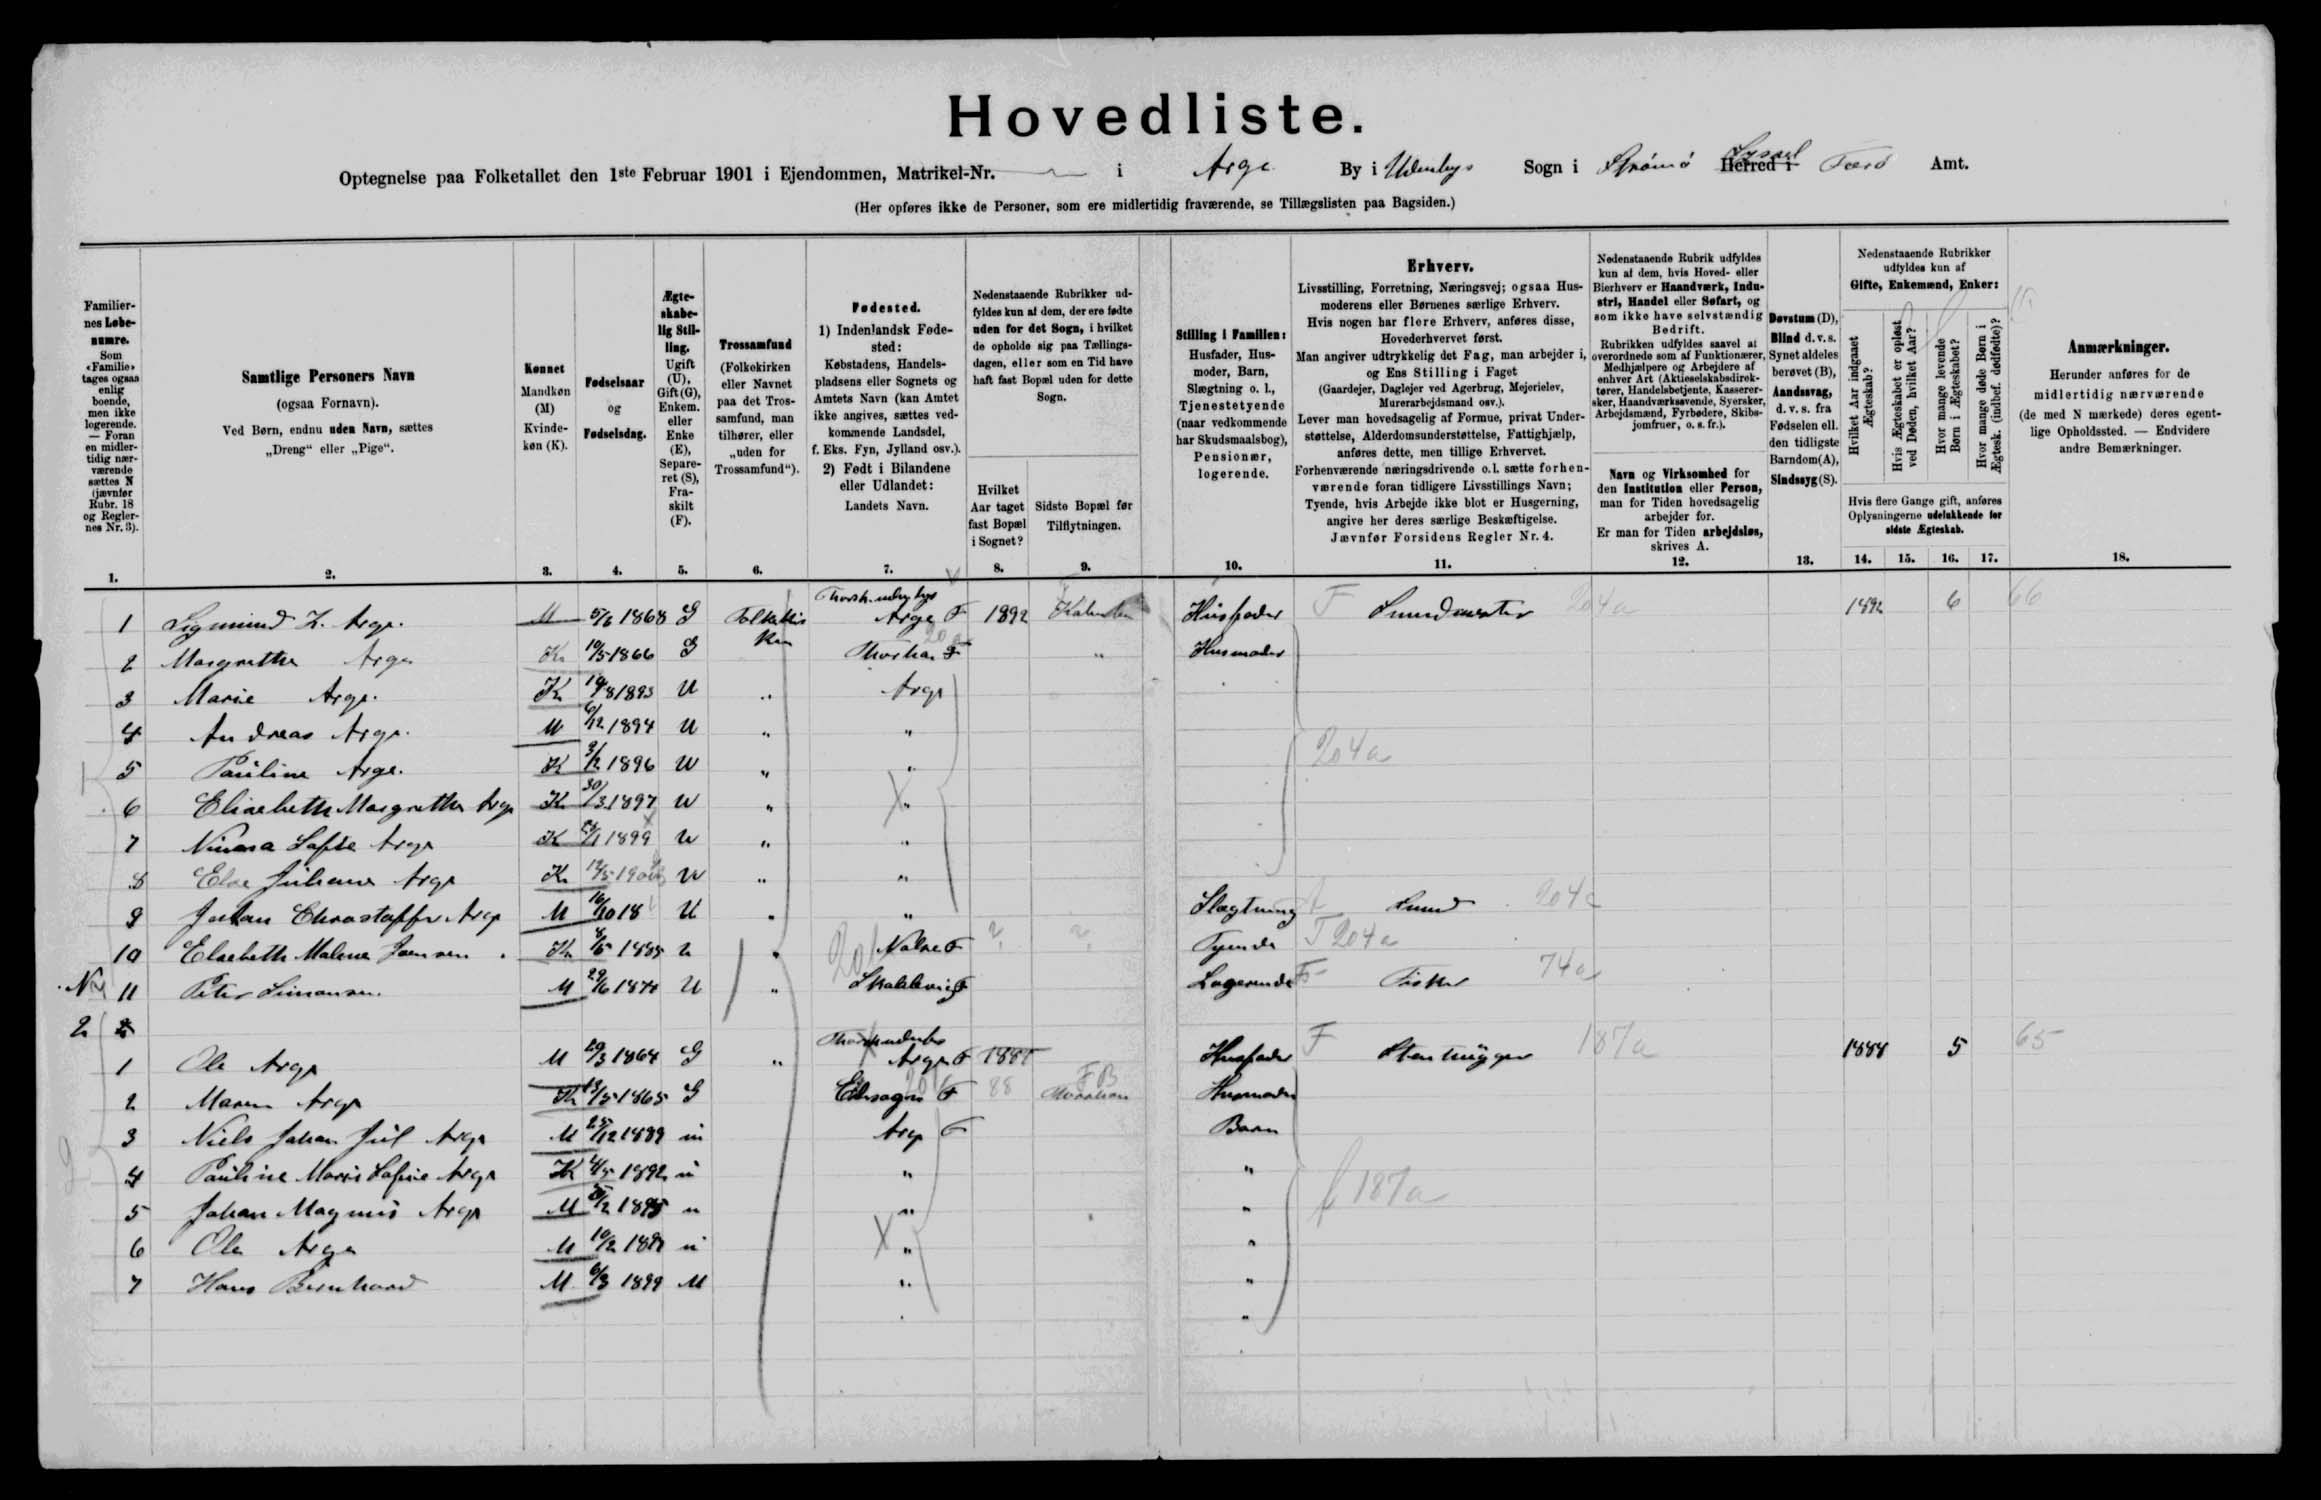 Hovedliste.
Optegnelse paa Folketallet den 1ste Februar 1901 i Ejendommen, Matrikel-Nr. i Arge By i Udenbys Sogn i Strömö Herred i Syssel Færö Amt.
(Her opføres ikke de Personer, som ere midlertidig fraværende, se Tillægslisten paa Bagsiden.)
Familiernes Løbenumre.
Som «Familie» tages ogsaa enlig boende, men ikke logerende. — Foran en midlertidig nærværende sættes N (jævnfør Rubr. 18 og Reglernes Nr. 3).
1.
Samtlige Personers Navn
(ogsaa Fornavn).
Ved Børn, endnu uden Navn, sættes
„Dreng“ eller „Pige“.
2.
Kønnet
Mandkøn (M)
Kvindekøn (K).
3.
Fødselsaar
og
Fødselsdag.
4.
Ægteskabelig Stilling.
Ugift (U), Gift (G), Enkem. eller Enke (E), Separeret (S), Fraskilt (F).
5.
Trossamfund
(Folkekirken eller Navnet paa det Trossamfund, man tilhører, eller „uden for Trossamfund“).
6.
Fødested.
1) Indenlandsk Fødested:
Købstadens, Handelspladsens eller Sognets og Amtets Navn (kan Amtet ikke angives, sættes vedkommende Landsdel, f. Eks. Fyn, Jylland osv.).
2) Født i Bilandene eller Udlandet:
Landets Navn.
7.
Nedenstaaende Rubrikker udfyldes kun af dem, der ere fødte uden for det Sogn, i hvilket de opholde sig paa Tællingsdagen, eller som en Tid have haft fast Bopæl uden for dette Sogn.
Hvilket Aar taget fast Bopæl i Sognet?
8.
Sidste Bopæl før Tilflytningen.
9.
Stilling i Familien:
Husfader, Husmoder, Barn, Slægtning o. l., Tjenestetyende (naar vedkommende har Skudsmaalsbog), Pensionær, logerende.
10.
Erhverv.
Livsstilling, Forretning, Næringsvej; ogsaa Husmoderens eller Børnenes særlige Erhverv.
Hvis nogen har flere Erhverv, anføres disse, Hovederhvervet først.
Man angiver udtrykkelig det Fag, man arbejder i, og Ens Stilling i Faget
(Gaardejer, Daglejer ved Agerbrug, Mejerielev, Murerarbejdsmand osv.).
Lever man hovedsagelig af Formue, privat Understøttelse, Alderdomsunderstøttelse, Fattighjælp, anføres dette, men tillige Erhvervet.
Forhenværende næringsdrivende o.l. sætte forhenværende foran tidligere Livsstillings Navn;
Tyende, hvis Arbejde ikke blot er Husgerning, angive her deres særlige Beskæftigelse.
Jævnfør Forsidens Regler Nr. 4.
11.
Nedenstaaende Rubrik udfyldes kun af dem, hvis Hoved- eller Bierhverv er Haandværk, Industri, Handel eller Søfart, og som ikke have selvstændig Bedrift.
Rubrikken udfyldes saavel at overordnede som af Funktionærer, Medhjælpere og Arbejdere af enhver Art (Aktieselskabsdirektører, Handelsbetjente, Kasserersker, Haandværkssvende, Syersker, Arbejdsmænd, Fyrbødere, Skibsjomfruer, o. s. fr.).
Navn og Virksomhed for den Institution eller Person, man for Tiden hovedsagelig arbejder for.
Er man for Tiden arbejdsløs, skrives A.
12.
Døvstum (D), Blind d. v. s. Synet aldeles berøvet (B), Aandssvag, d. v. s. fra Fødselen ell. den tidligste Barndom (A), Sindssyg (S).
13.
Nedenstaaende Rubrikker udfyldes kun af Gifte, Enkemænd, Enker:
Hvilket Aar indgaaet Ægteskab?
Hvis Ægteskabet er opløst ved Døden, hvilket Aar?
Hvor mange levende Børn i Ægteskabet?
Hvor mange døde Børn i Ægtesk. (indbef. dødfødte)?
Hvis flere Gange gift, anføres Oplysningerne udelukkende for sidste Ægteskab.
14. 15. 16. 17.
Anmærkninger.
Herunder anføres for de midlertidig nærværende (de med N mærkede) deres egentlige Opholdssted. — Endvidere andre Bemærkninger.
18.
1 Sigmund Z. Arge. M 5/6 1868 G Folkekirken Arge F 1892 Husfader F 204a 1892 6 66
2 Margrethe Arge K 10/5 1866 G Thorhavn F „ Husmoder
3 Marie Arge. K 1893 U „ Arge
4 Andreas Arge. M 6/12 1894 U „ „
5 Pauline Arge. K 3/12 1896 U „ „ 204a
6 Elisabeth Margrethe Arge K 30/3 1897 U „ „
7 Sofie Arge K 1899 U „ „
8 Else Juliane Arge K U „ „
9 Johan Christoffer Arge M 16/10 18 U „ „ Slægtning Smed 204a
10 Elsebeth Malene Joensen K 8/5 1885 U „ Nolsø F ? ? Tyende T 204a
N 11 Peter Simonsen. M 29/6 U „ F Logerende F Fisker 74a
2
1 Ole Arge M 29/3 1864 G „ Arge F Husfader F Stenhugger 187a 1888 5 65
2 Maren Arge K 1865 G F 88 Thorshavn FB Husmoder
3 Niels Johan Jul Arge M 25/12 1889 u Arge F Barn
4 Pauline Marie Sofie Arge K 1892 u „ „
5 Johan Magnus Arge M 1895 u „ „ f 187a
6 Ole Arge M u „ „
7 Hans Bernhard M 6/3 1899 M „ „
„